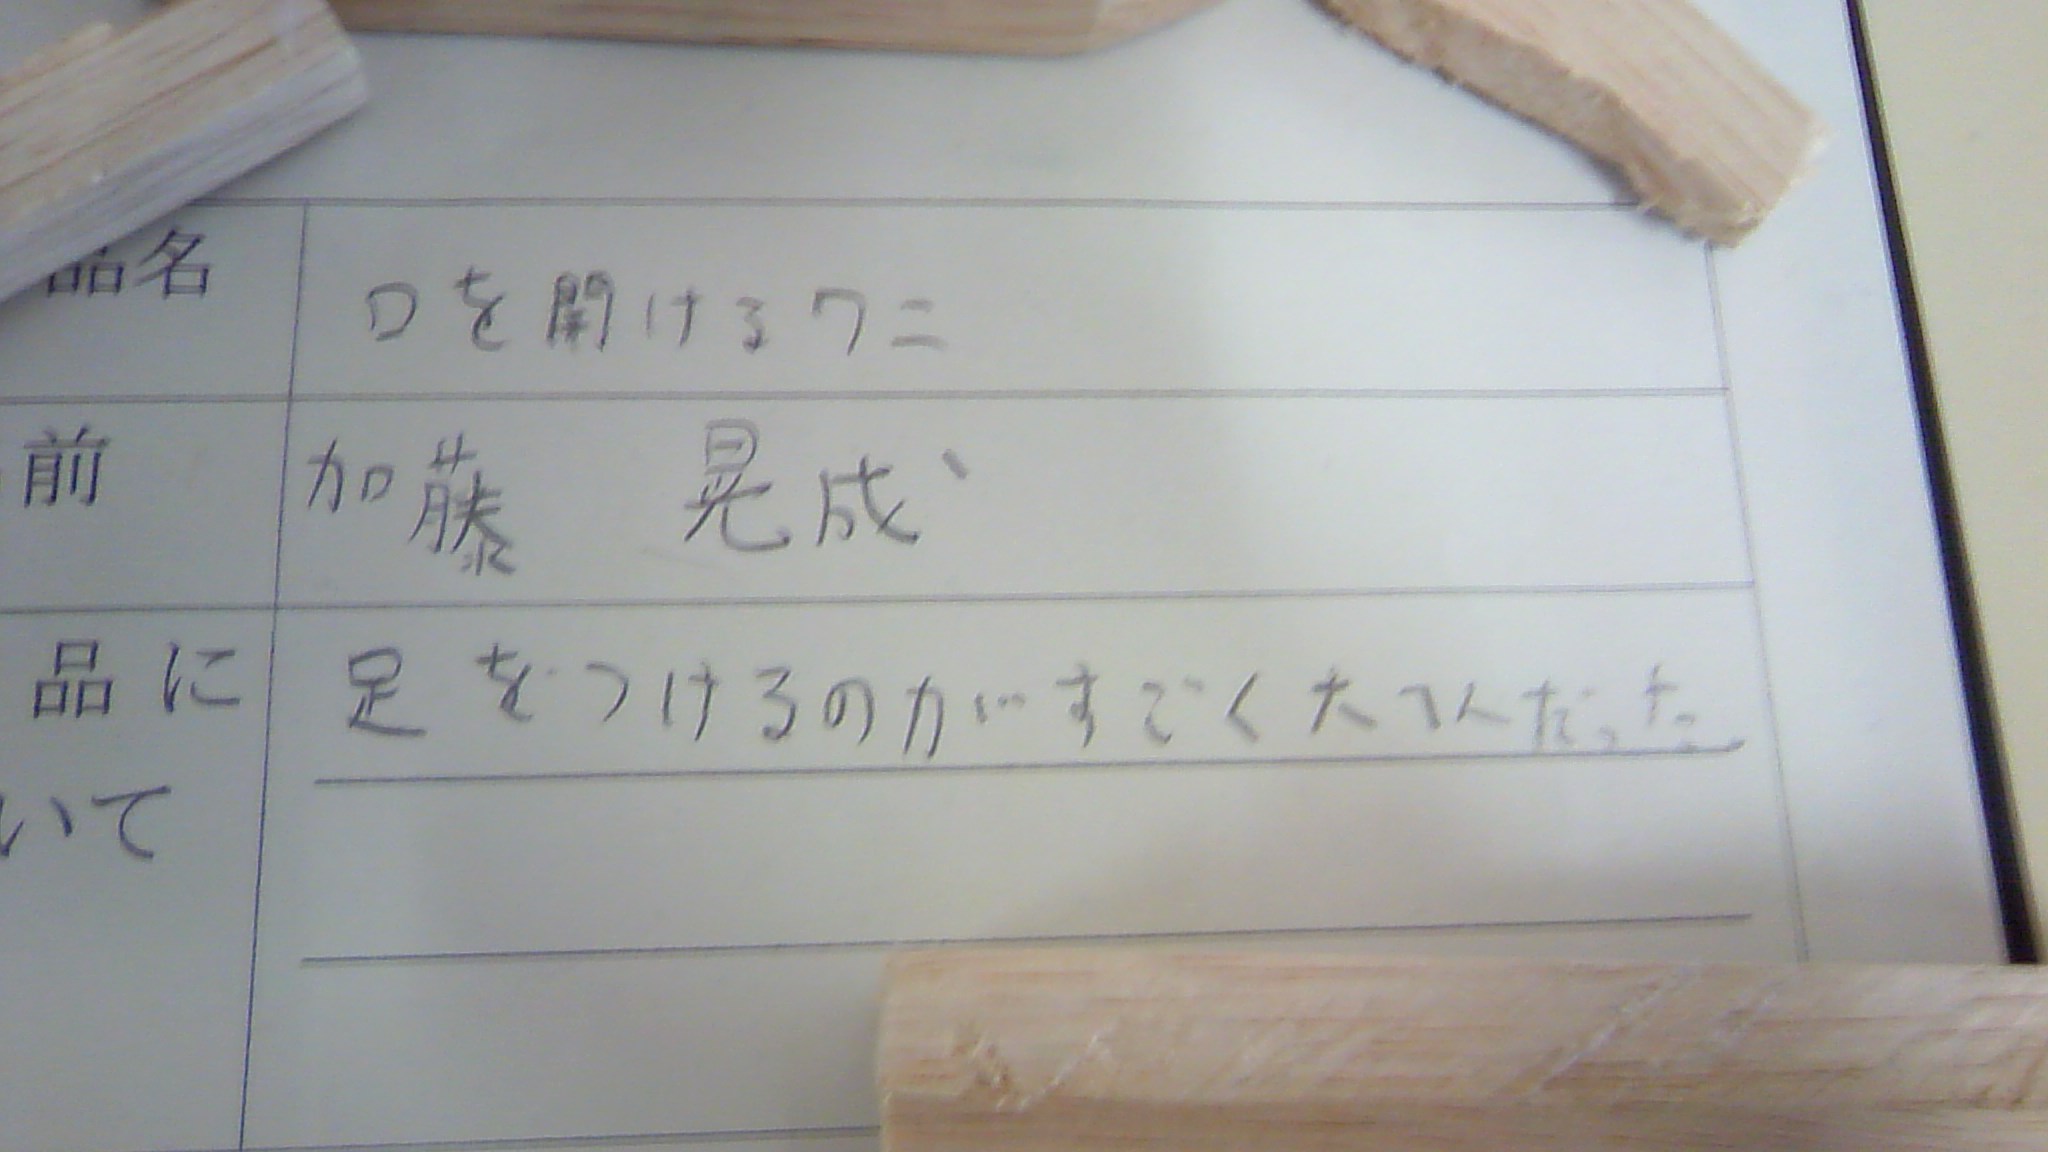 品名
口を開けるワニ
前
加藤 晃成
品に
いて
足をつけるのがすごく大へんだった